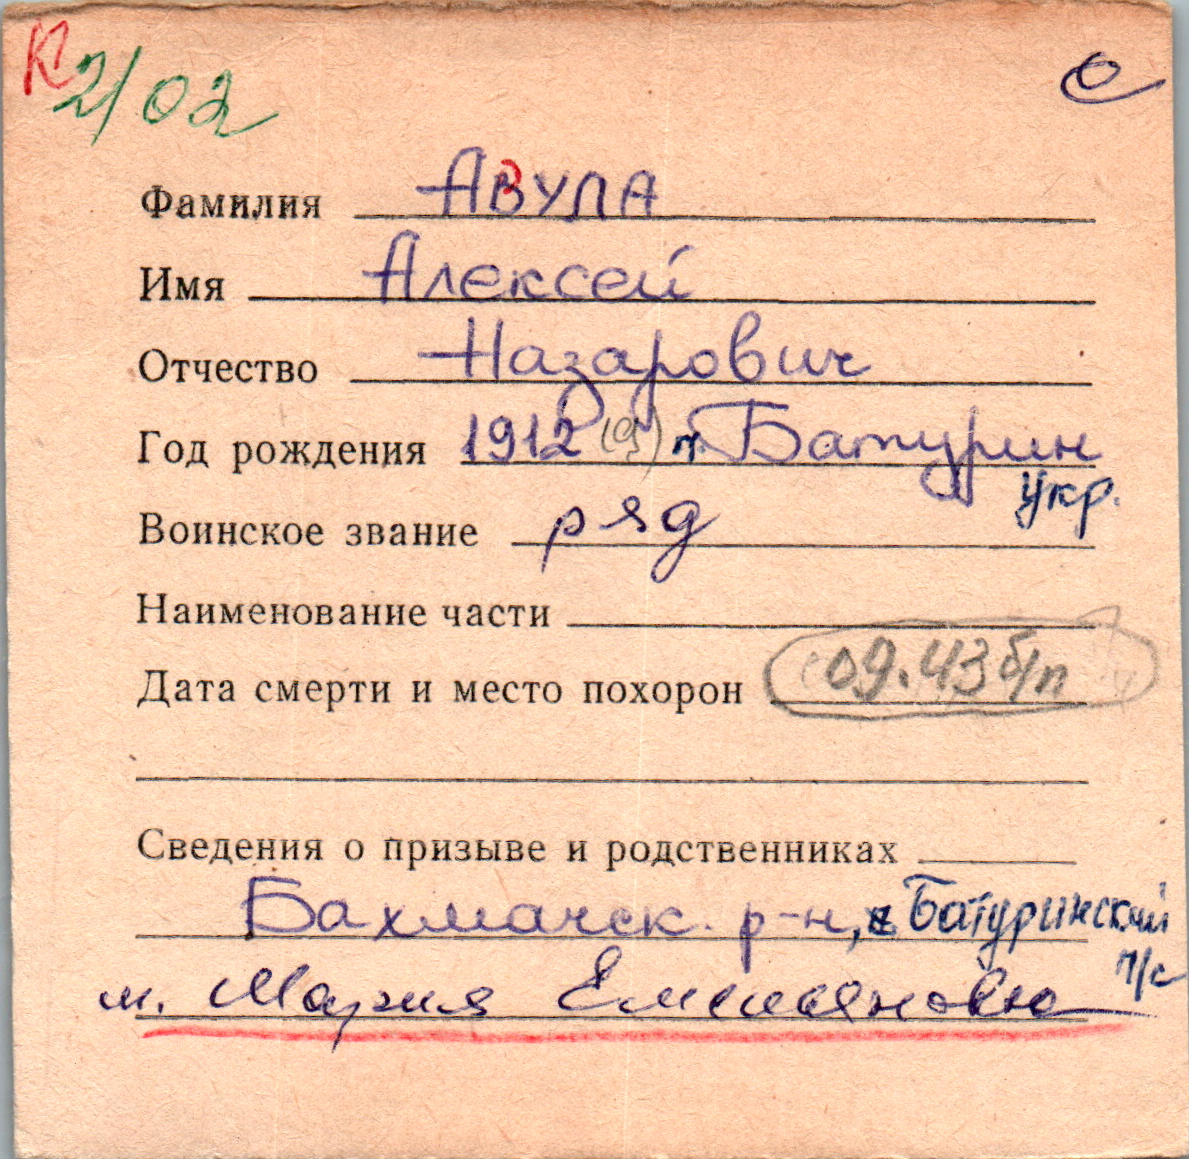 К 2/02
Фамилия АВУЛА
Имя Алексей
Отчество Назарович
Год рождения 1912 (9) Батурин
Укр.
Воинское звание ряд
Наименование части
Дата смерти и место похорон 09.43 б/п
Сведения о призыве и родственниках
Бахмачск. р-н, Батуринский
п/с
м. Мария Емельяновна